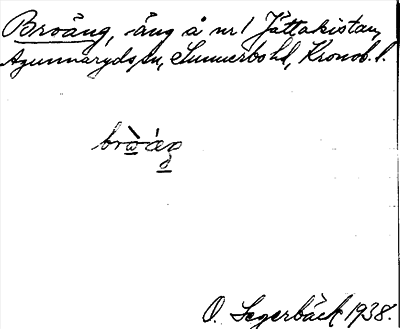 Broäng, äng å nr 1 Jättakistan,
Agunnaryds sn, Sunnerbo hd, Kronob. l.
O. Segerbäck 1938.